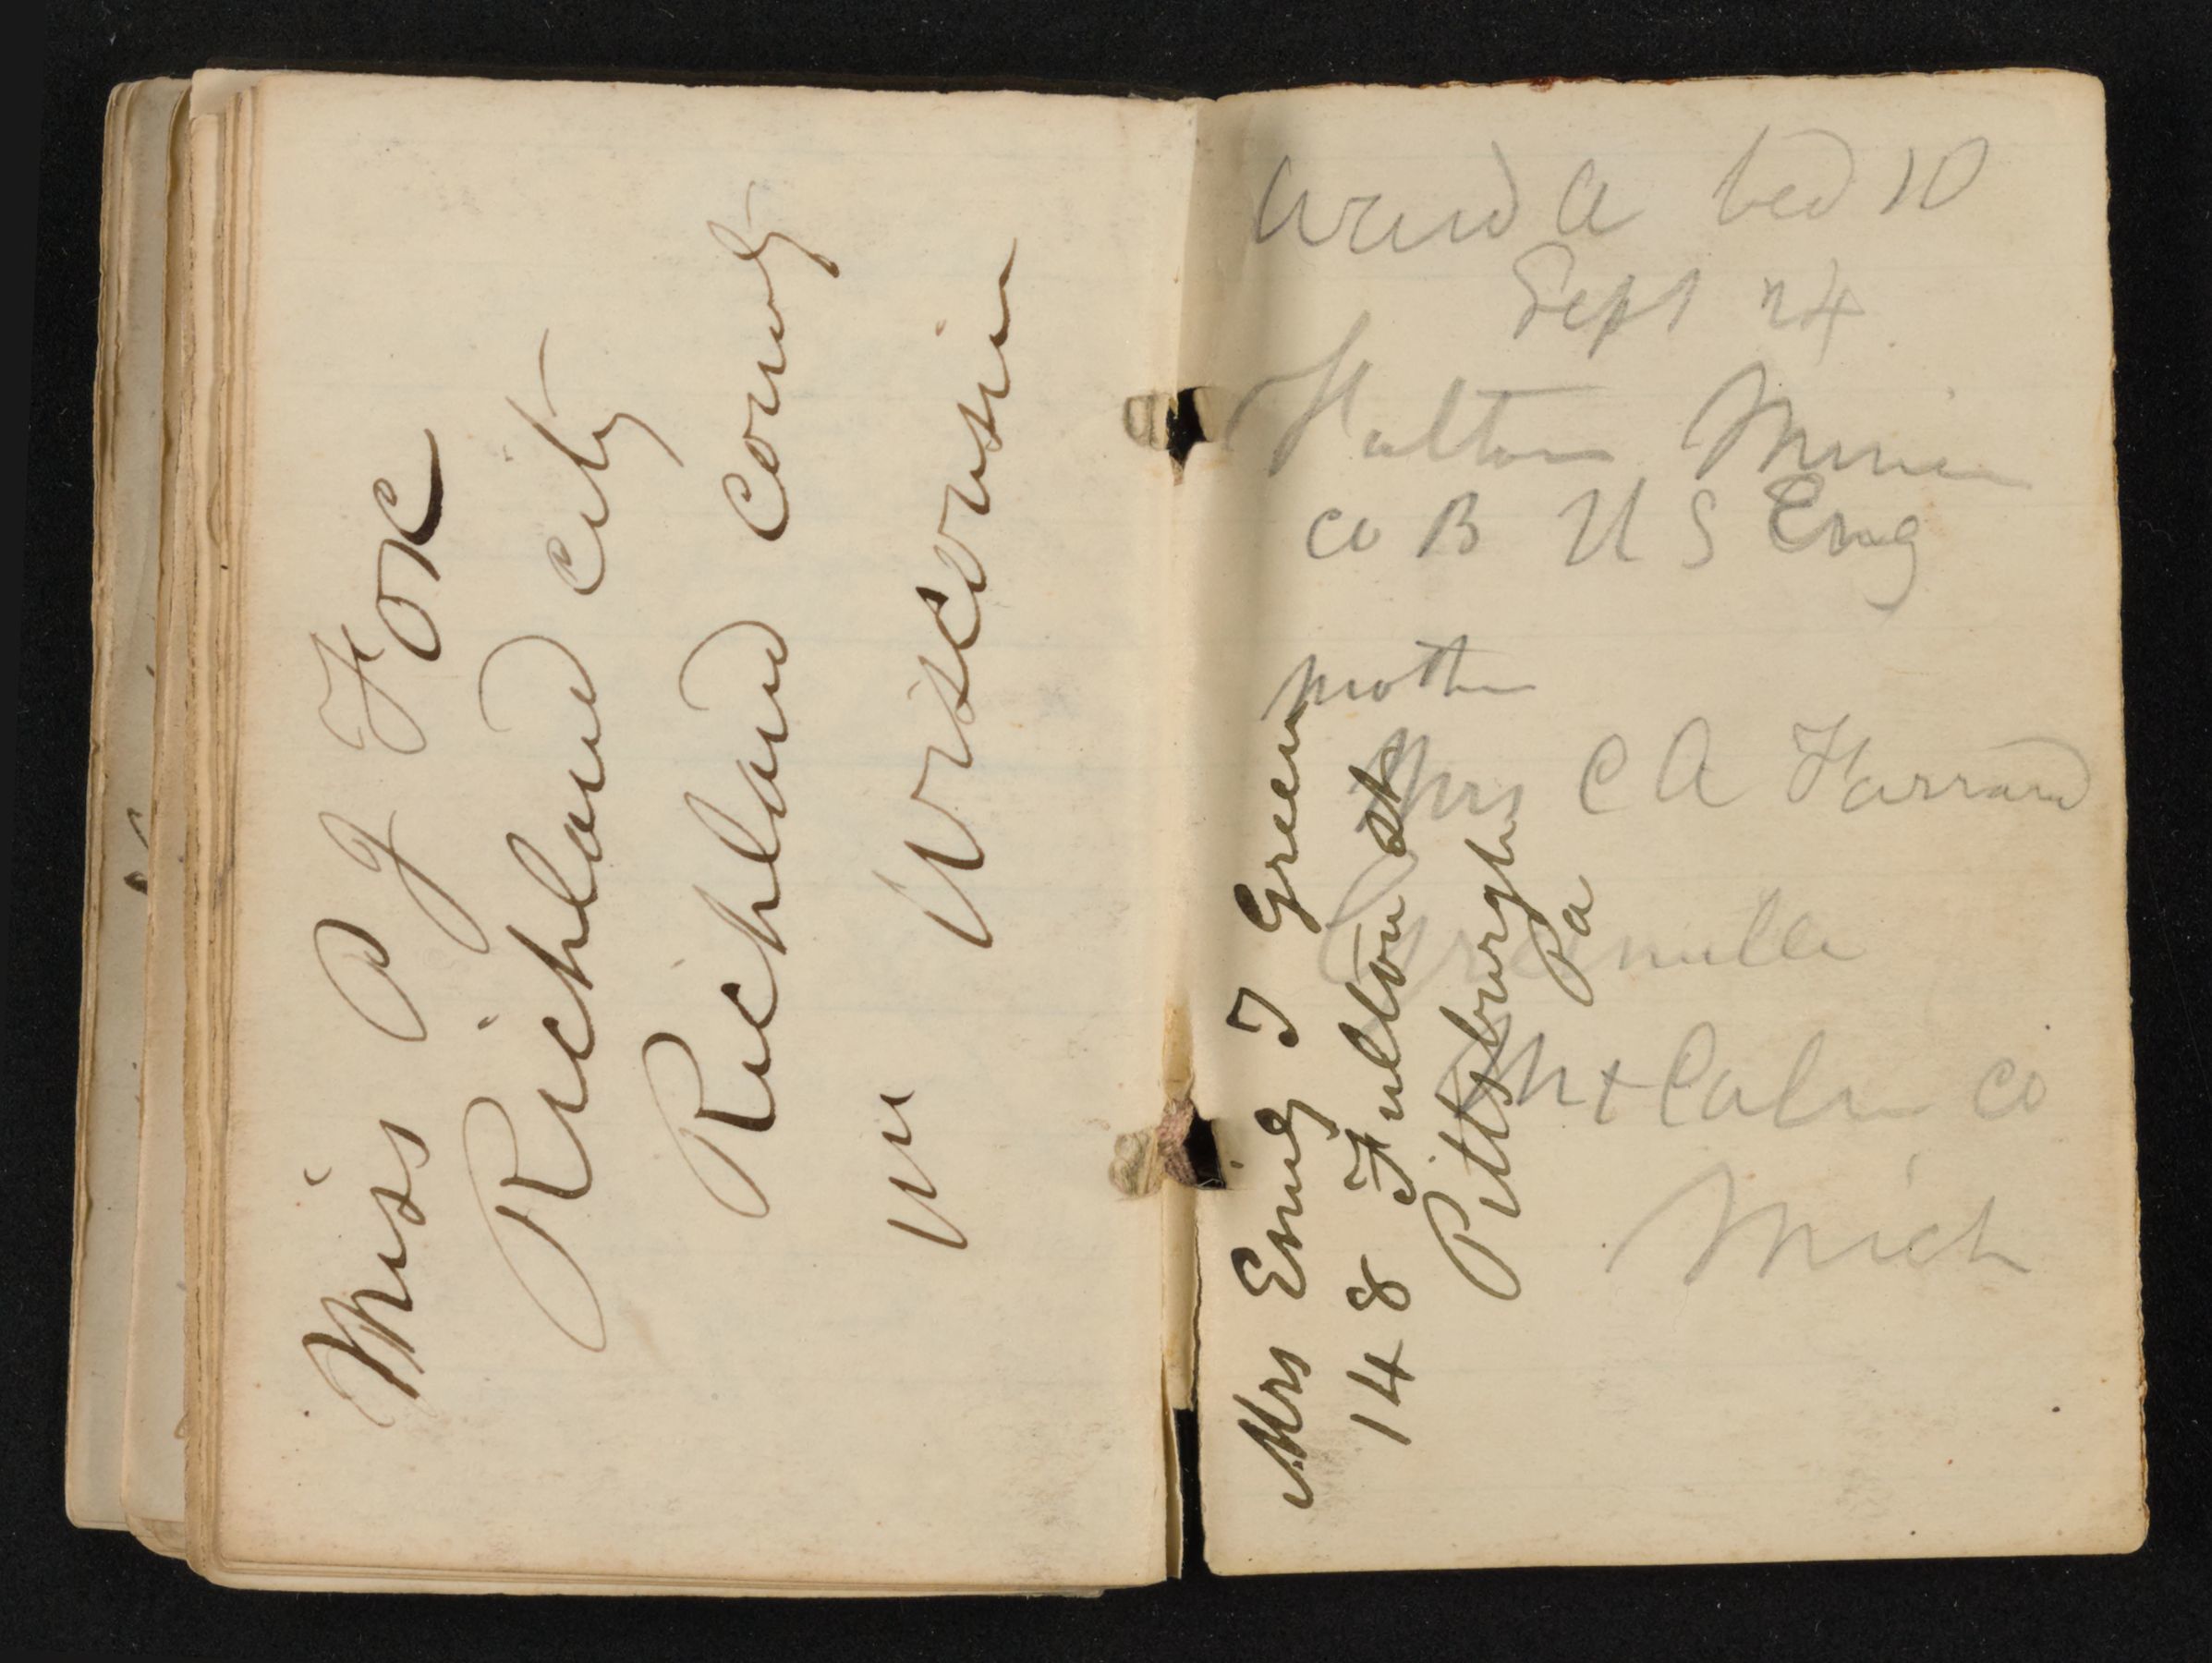 Miss P J Fox
Richland city
Richland county
Wisconsin
ward A bed 10
Sept 24
Co B U S Eng
mother
Mrs C A Farrand
Mt Calm Co
Mich
Mrs Emily T Green
148 Fulton st
Pittsburgh
Pa